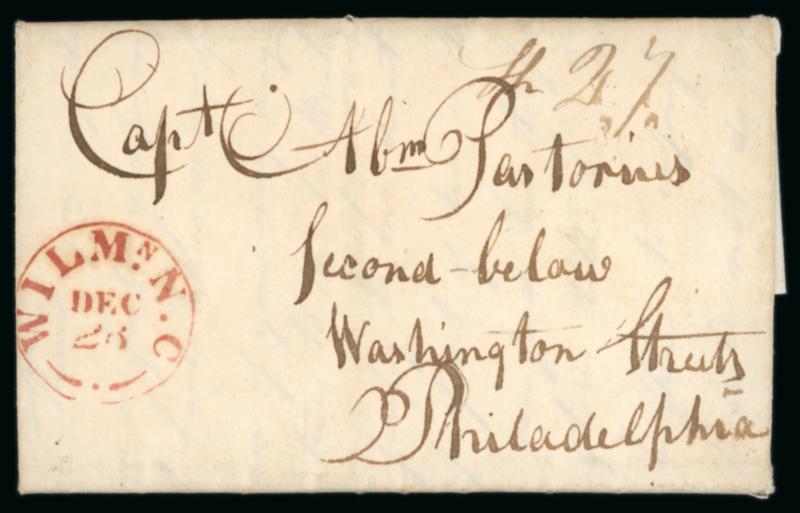 Sh 27
Capt Abm Pastorius
Second below
Washington Streets
Philadelphia
WILMN. N.C
DEC
26